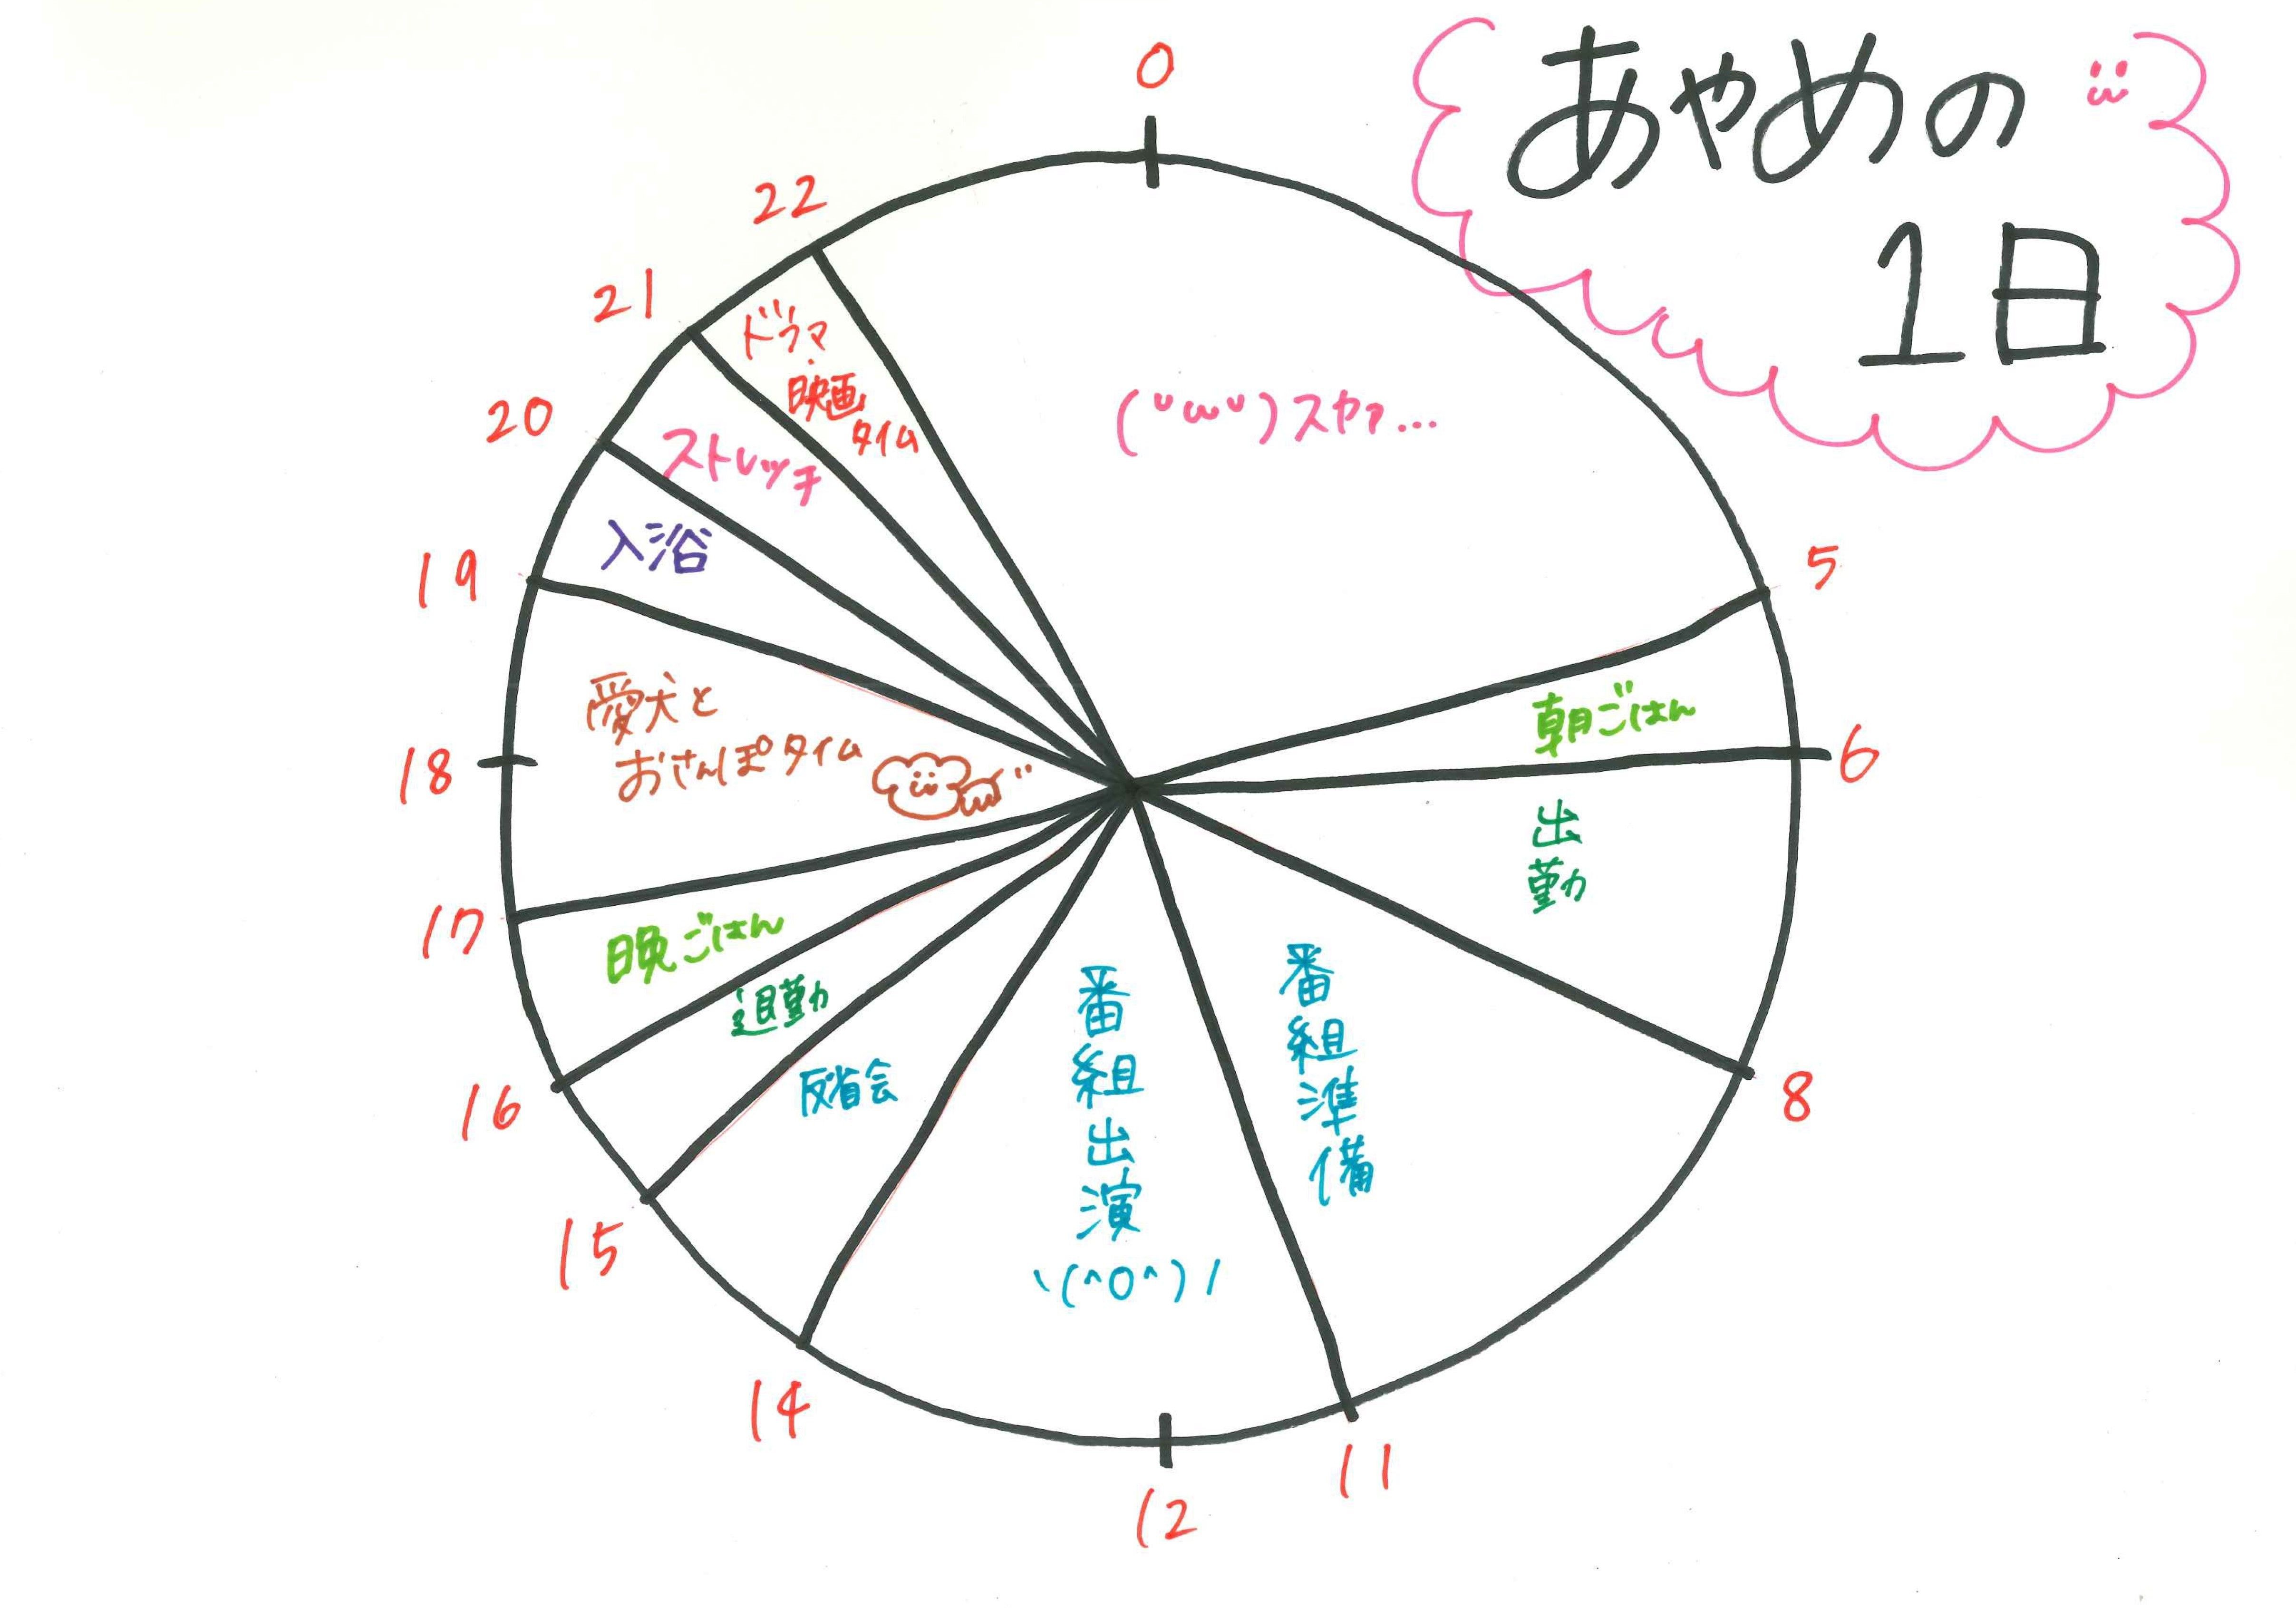 あやめの
1日
0
5
6
8
11
12
14
15
16
17
18
19
20
21
22
(ᵕωᵕ)スヤァ...
朝ごはん
出勤
番組準備
番組出演
ヽ(^O^)ノ
反省会
退勤
晩ごはん
愛犬と
おさんぽタイム
入浴
ストレッチ
ドラマ
・
映画
タイム